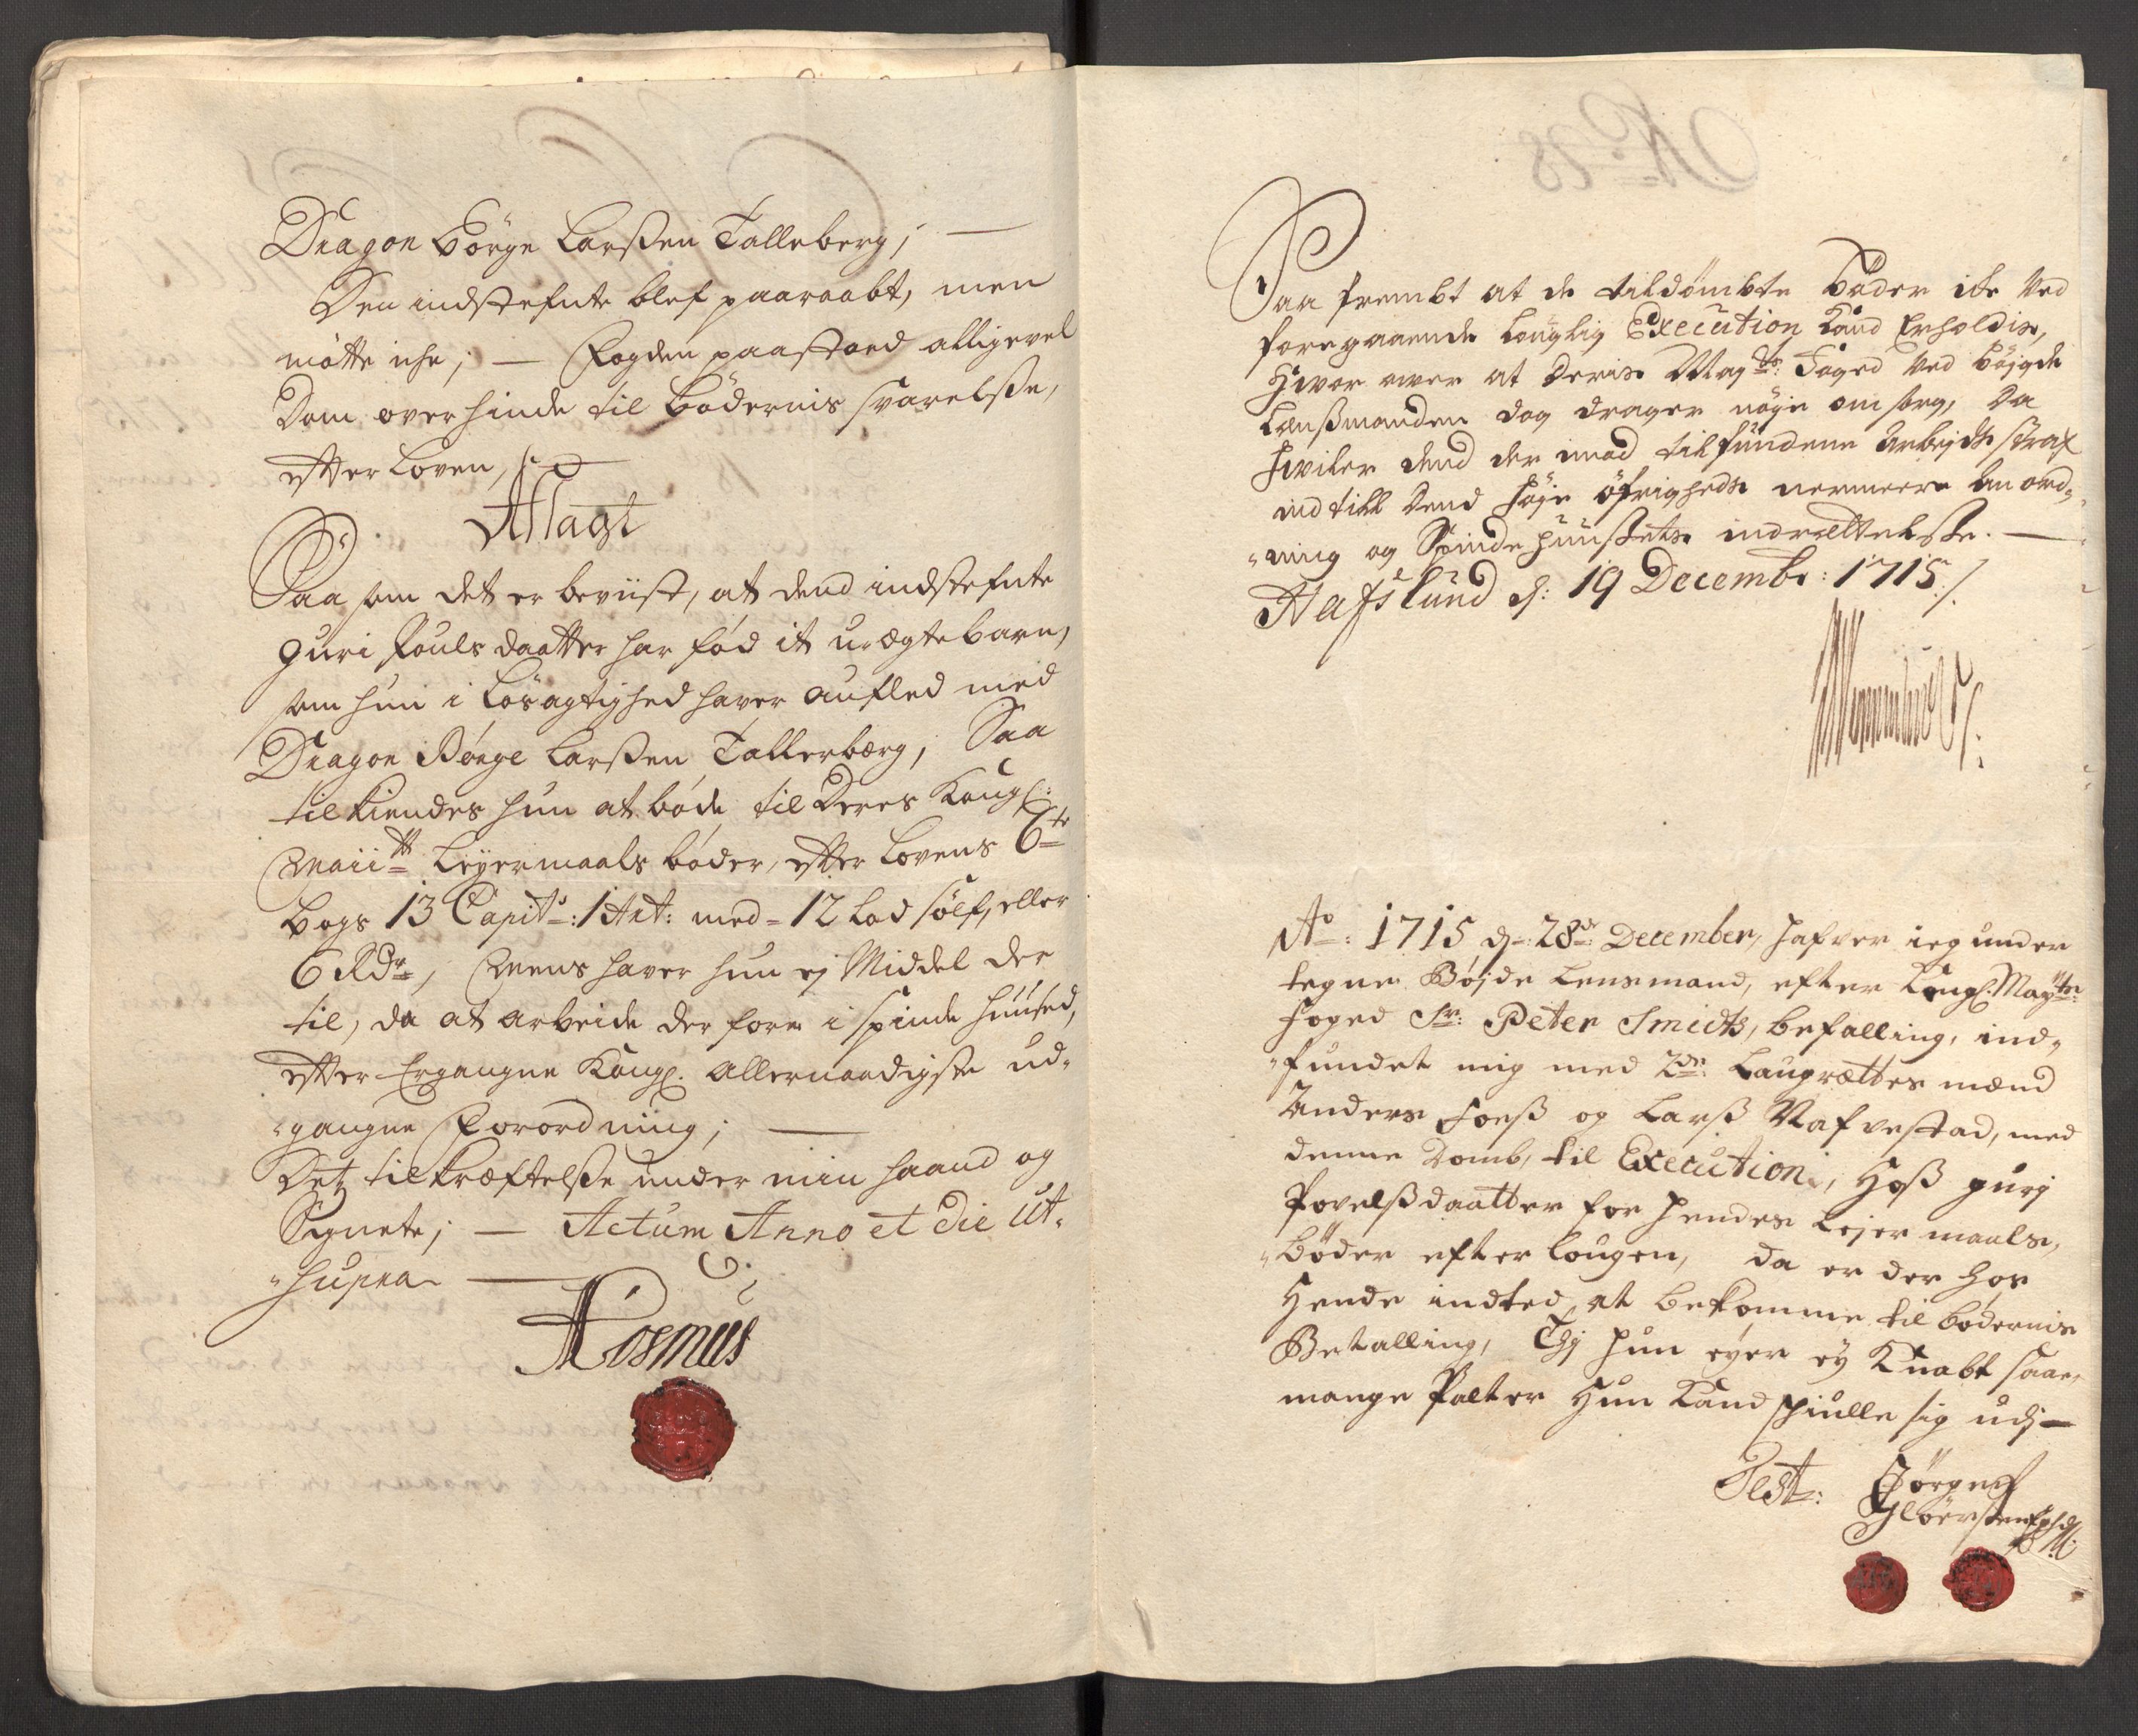 Dragon Börge Larßen Talleberg; —
Den indstefnte blef paaraabt, men
mötte iche; — Fogden paastoed alligevel
Dom over hinde til Bödernis svarelße,
effter Loven,
Afsagt
Saa som det er beviist, at dend indstefnte
Guri Pouls daatter har fód it uægte barn,
som hun i Lösagtighed haver auflled med
Dragon Börge Larßen Tallerberg, Saa
tilkiendes hun at bóde til Deres Kongl:
Maii<sup>tt</sup> Leyermaals bóder, effter Lovens 6<sup>te</sup>
bogs 13 Capit<sup>s</sup>: 1 Art: med = 12 Lod sölf, eller
6 Rd<sup>r</sup>, Mens haver hun ej Middel der
til, da at arbeide der fore i spinde huused,
effter Ergangne Kongl. Allernaadigste ud-
"gangne Forordning; —
Det til Kræftelße under min haand og
Signete; — Actum Anno et die ut-
"supra —
A Rosmus
No 28
Saa frembt at de tildömbte Böder icke ved
foregaaende louglig Execution Kand Erholdis,
Hvor over at Deris May<sup>ts</sup>: Foged ved böigde
Lenßmanden dog drager nöye omsorg, Da
hviler dend der imod tilfundene Arbejde strax
indtill Dend höje öfrigheds nermere An ord-
"ning og Spindehuußets indrættelße. —
Hafslund d: 19 Decembr: 1715 /.
A<sup>o</sup>: 1715 d: 28<sup>de</sup>: December, hafver ieg under
tegne Böjde Lensmand, efter Kongl. May<sup>tts</sup>:
foged Sr: Peter Smidts, befalling, ind-
"fundet mig med 2<sup>de</sup>: Laugrættes mænd
Anders Foeß og Larß Nafvestad, med
denne Domb, til Execution, Hoß gurj
Povelßdaatter for hendes Lejer maals,
"böder efter lougen, da er der hos
Hende indted at bekomme til bödernis
Betalling, Thj hun eyer ey Knabt saa
mange Palter Hun Kand skiulle sig udj —
Test: Jörgen
Glöersen